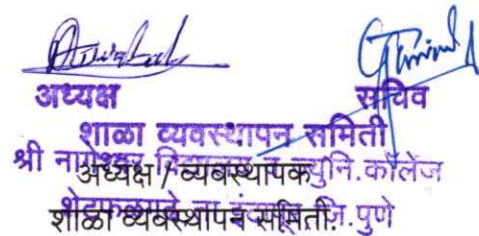 अध्यक्ष सचिव
शाळा व्यवस्थापन समिती
श्री नागेश्वर विद्यालय व ज्युनि.कॉलेज
अध्यक्ष / व्यवस्थापक
जि.पुणे
शाळा व्यवस्थापन समिती.